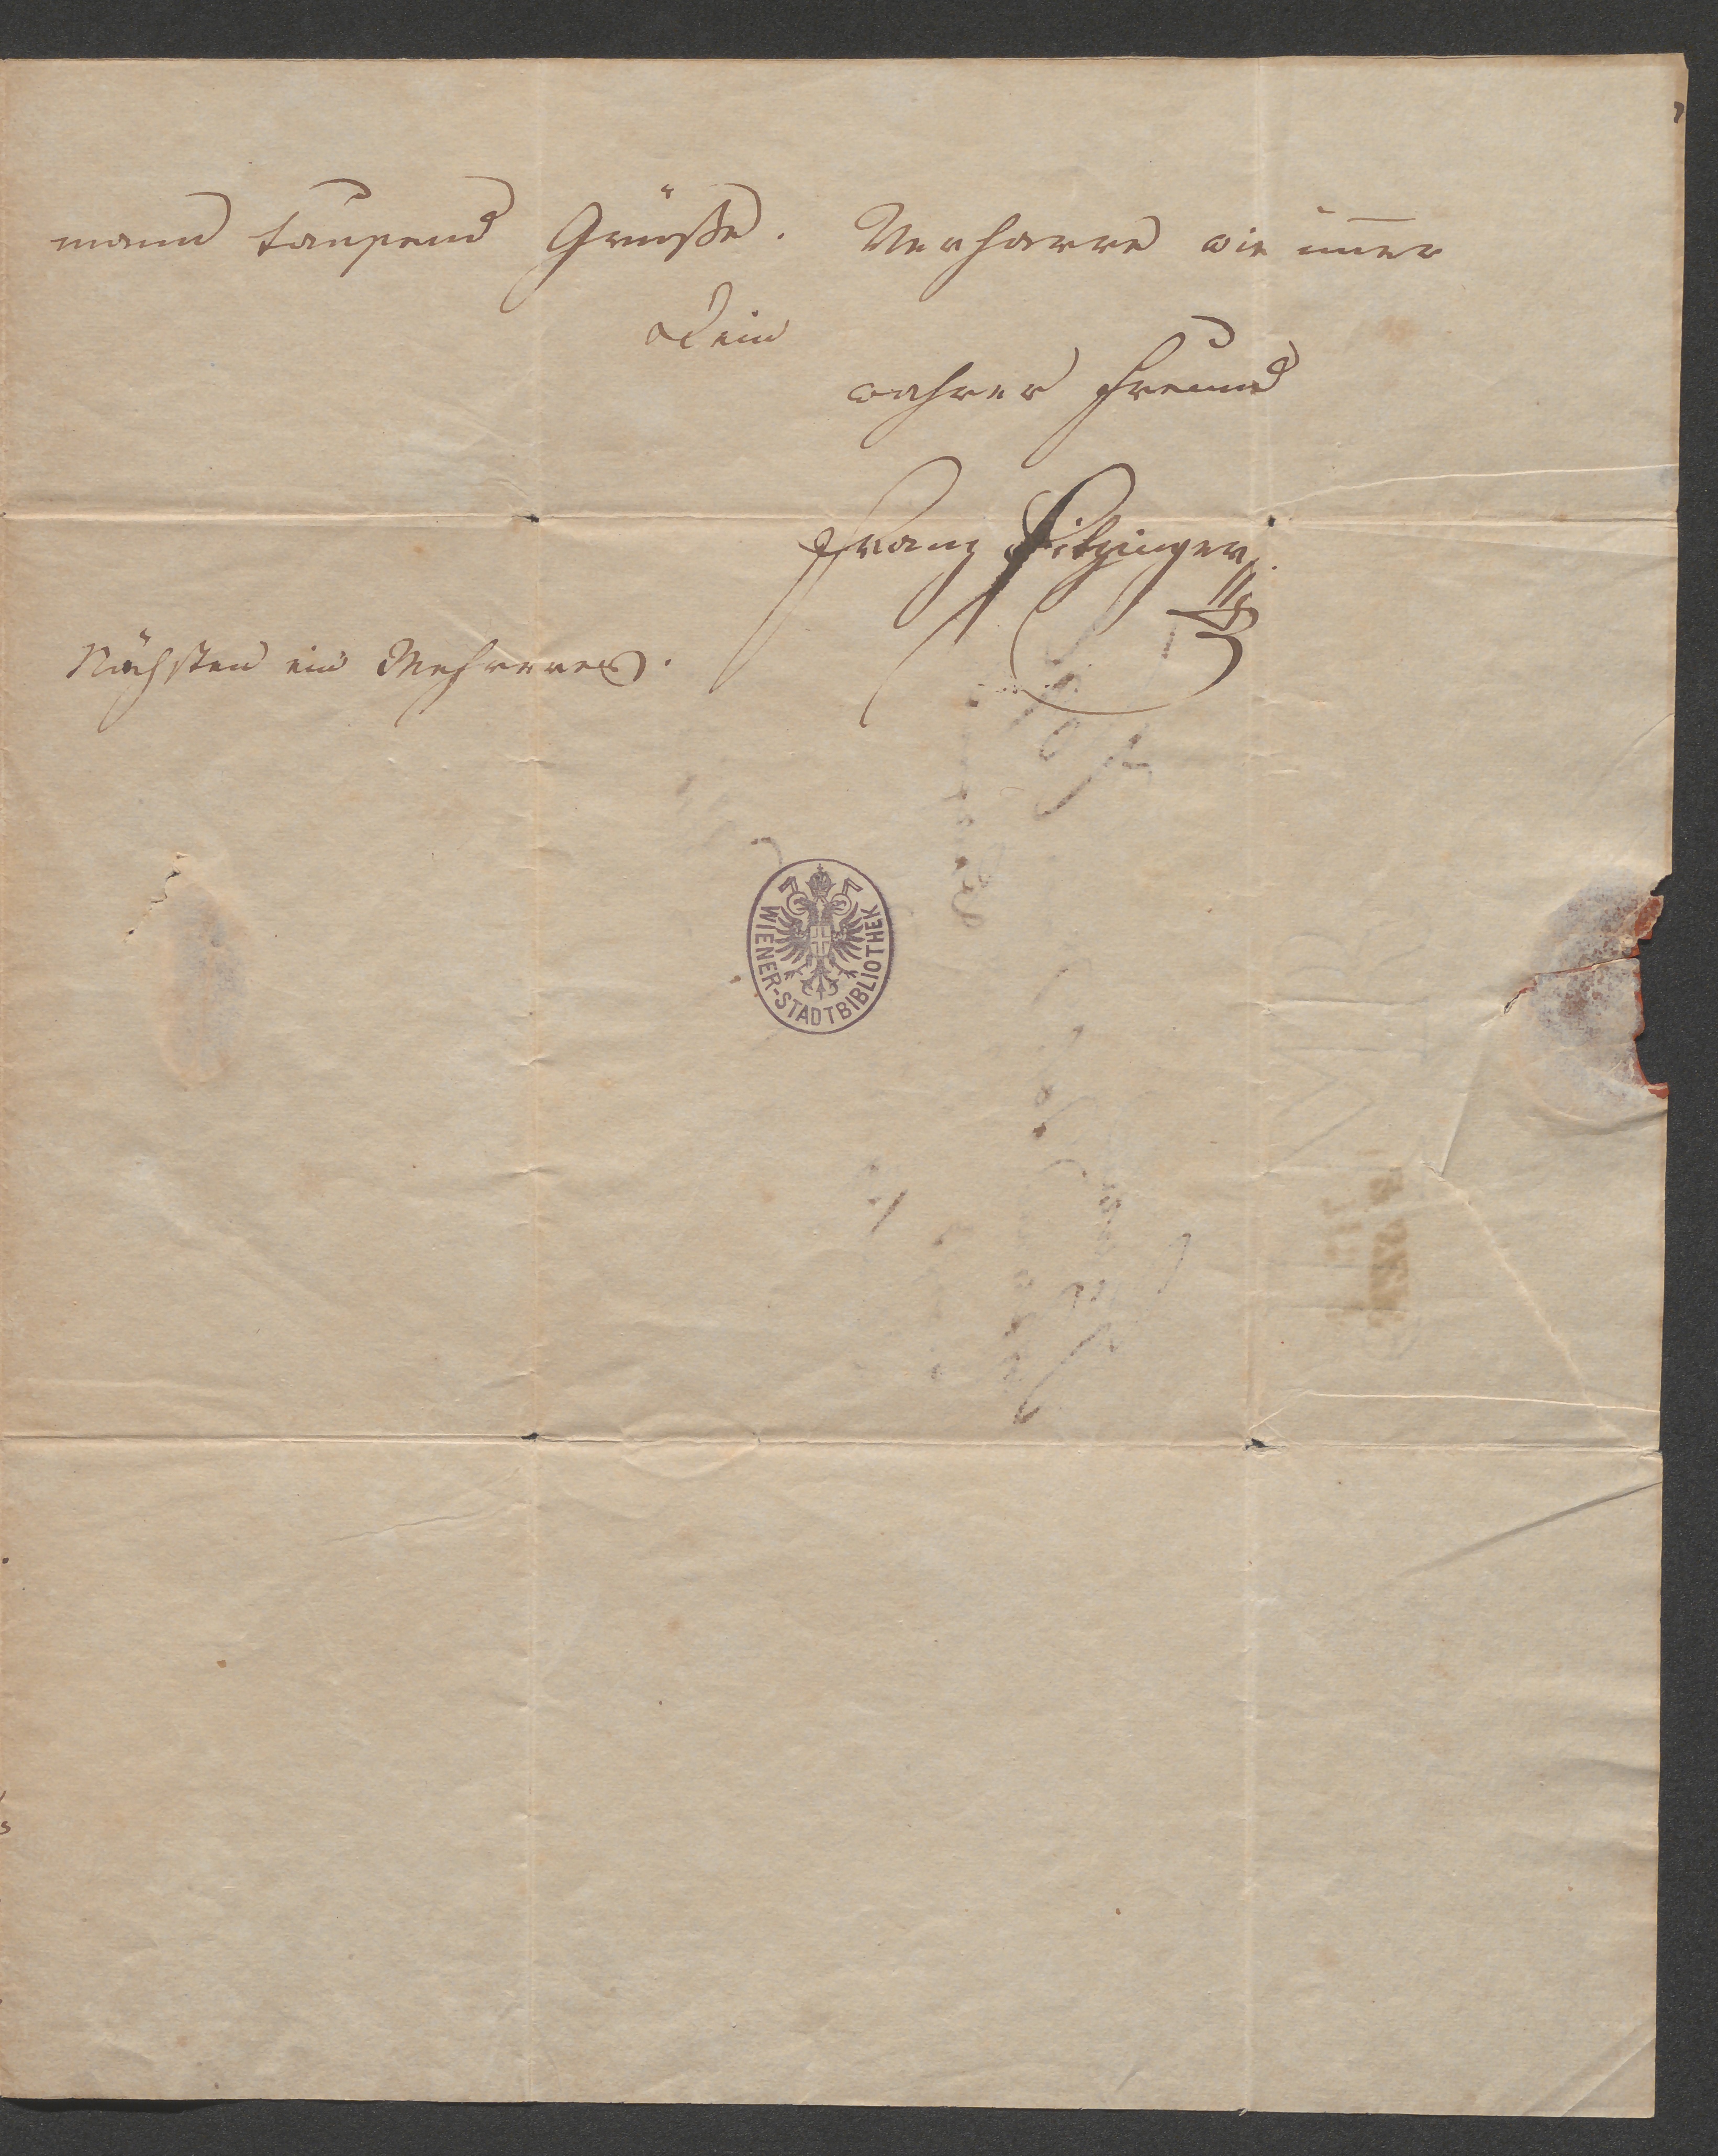 mann tausend Grüße. Verharre wie im̅er
Dein
wahrer Freund
Franz Fitzinger
Nächsten ein Mehreres.
WIENER-STADTBIBLIOTHEK